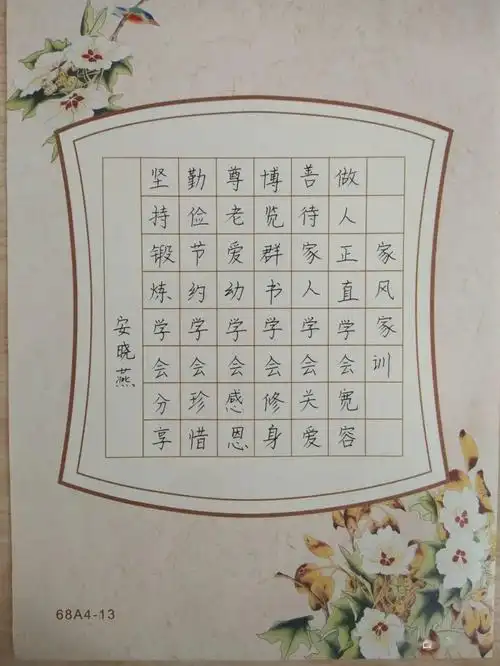 家风家训
做人正直学会宽容
善待家人学会关爱
博览群书学会修身
尊老爱幼学会感恩
勤俭节约学会珍惜
坚持锻炼学会分享
安晓燕
68A4-13